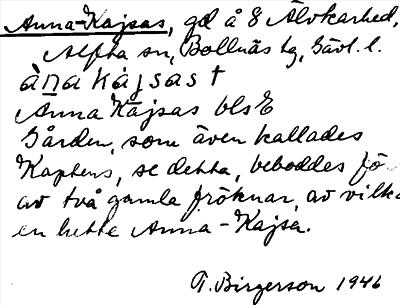 Anna-Kajsas, gd å 8 Älvkarhed,
Alfta sn, Bollnäs tg, Gävl. l.
àna kàjsas †
Anna Kajsas bls E
Gården, som även kallades
Kaptens, se detta, beboddes för
av två gamla fröknar, av vilka
en hette Anna-Kajsa.
T. Birgerson 1946